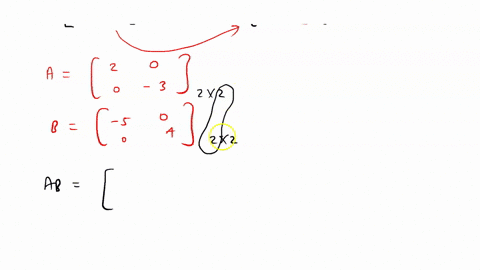 A = [ 2 0
0 -3 ] 2x2
B = [ -5 0
0 4 ] 2x2
AB = [